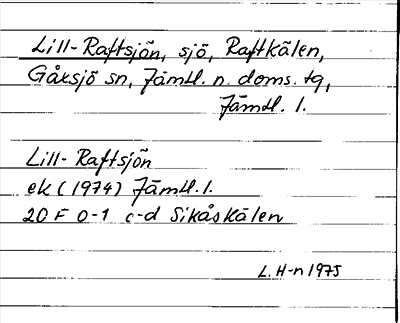 Lill-Raftsjön, sjö, Raftkälen,
Gåxsjö sn, Jämtl. n. doms. tg,
Jämtl. l.
Lill-Raftsjön
ek (1974) Jämtl. l.
20 F 0-1 c-d Sikåskälen
L. H-n 1975